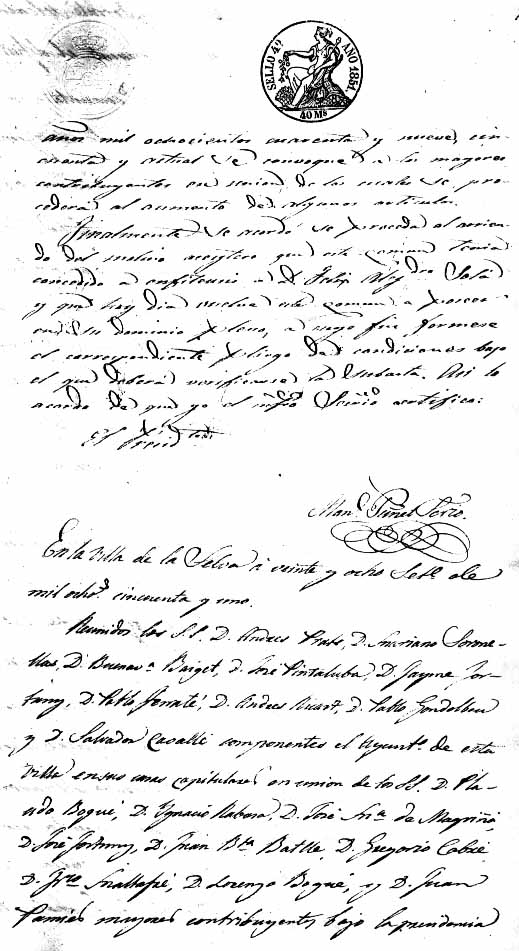 SELLO 4º AÑO 1851.
40 Ms
años mil ochocientos cuarenta y nueve, cin-
cuenta y actual se convoque a los mayores
contribuyentes en union de los cuales se pro-
cederá al aumento de algunos articulos.
Finalmente se acordó se proceda al arrien-
do del molino aceytero que este comun tenia
concedido a enfiteusis a D. Felix Sola
y que hoy dia vuelve este comun a poseer
en su dominio pleno, a cuyo fin formese
el correspondiente pliego de condiciones bajo
el que deberá verificarse la Subasta. Asi lo
acordó de que yo el infro Scrio certifico:
El Presid
Manl
En la Villa de la Selva á veinte y ocho Setе de
mil ochos cincuenta y uno.
Reunidos los S.S. D. Andres Prats, D. Mariano
D. Buenava Baiget, D. José Pintaluba, D. Jayme For-
tuny, D. Pablo Ferraté, D. Andres D. Pablo
y D. Salvador Cavallé componentes el Ayunto de esta
Villa en sus casas capitulares en union de los SS. D. Pla-
Bogué, D. Ignacio D. José Ma de Magriñá,
D. José Fortuny, D. Juan Bta Batlle, D. Gregorio Cabré
D. Fco D. Lorenzo Bogué, y D. Juan
Pamies mayores contribuyentes bajo la presidencia